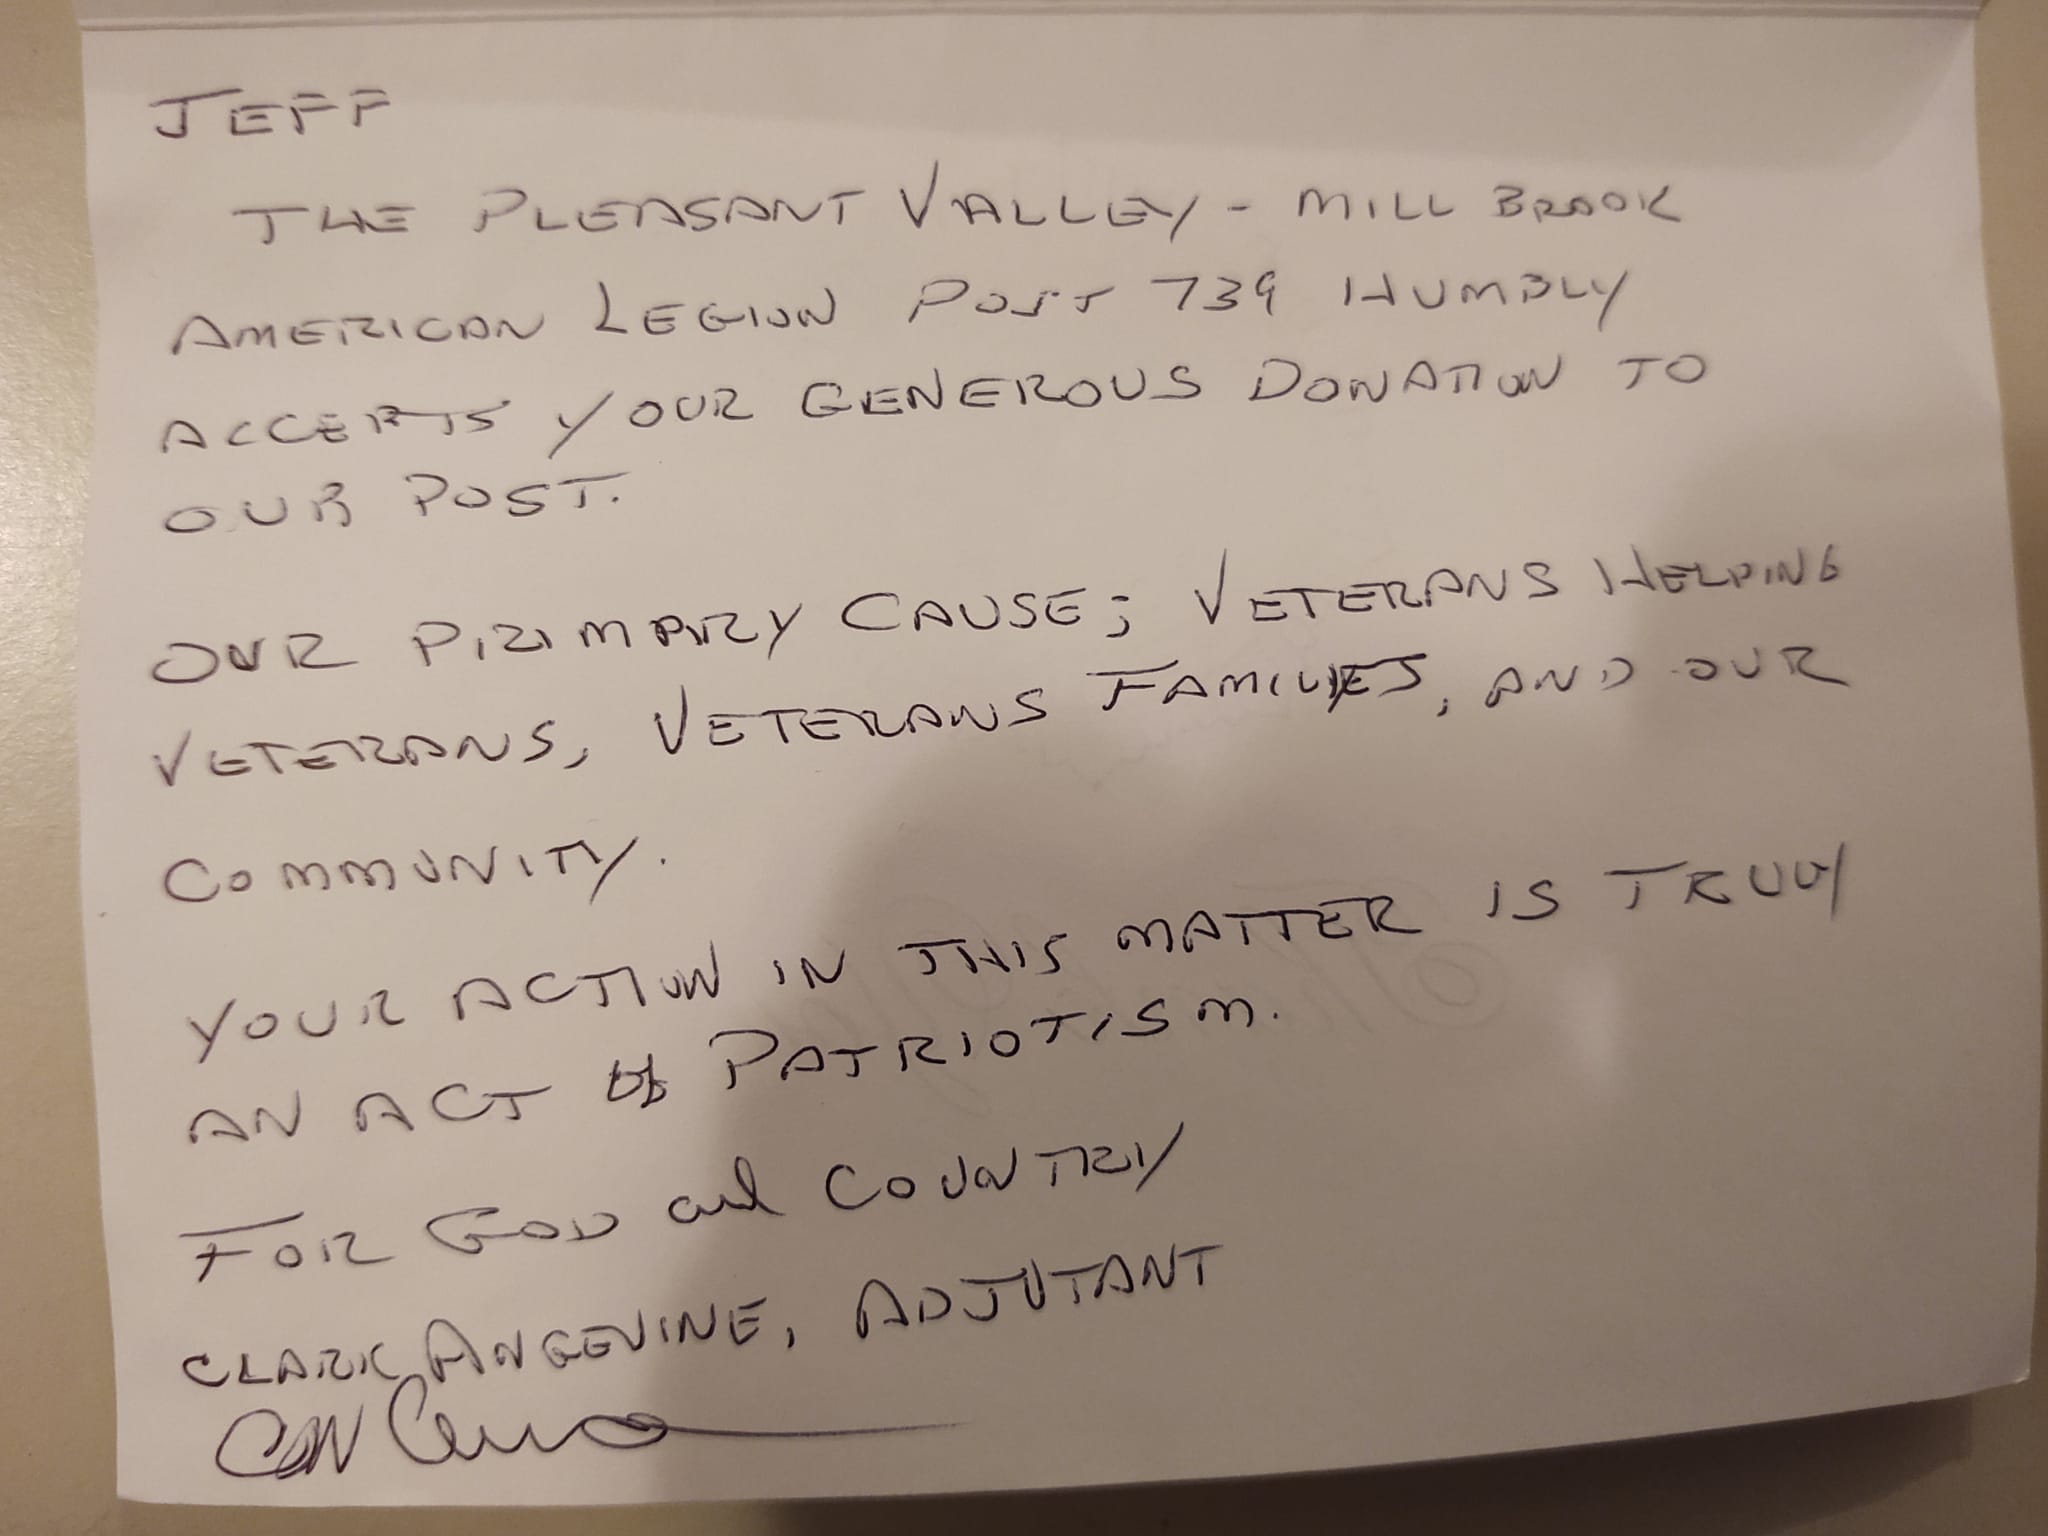 JEFF
THE PLEASANT VALLEY - MILL BROOK
AMERICAN LEGION POST 739 HUMBLY
ACCEPTS YOUR GENEROUS DONATION TO
OUR POST.
OUR PRIMARY CAUSE; VETERANS HELPING
VETERANS, VETERANS FAMILIES, AND OUR
COMMUNITY.
YOUR ACTION IN THIS MATTER IS TRULY
AN ACT of PATRIOTISM.
FOR GOD and COUNTRY
CLARK ANGEVINE, ADJUTANT